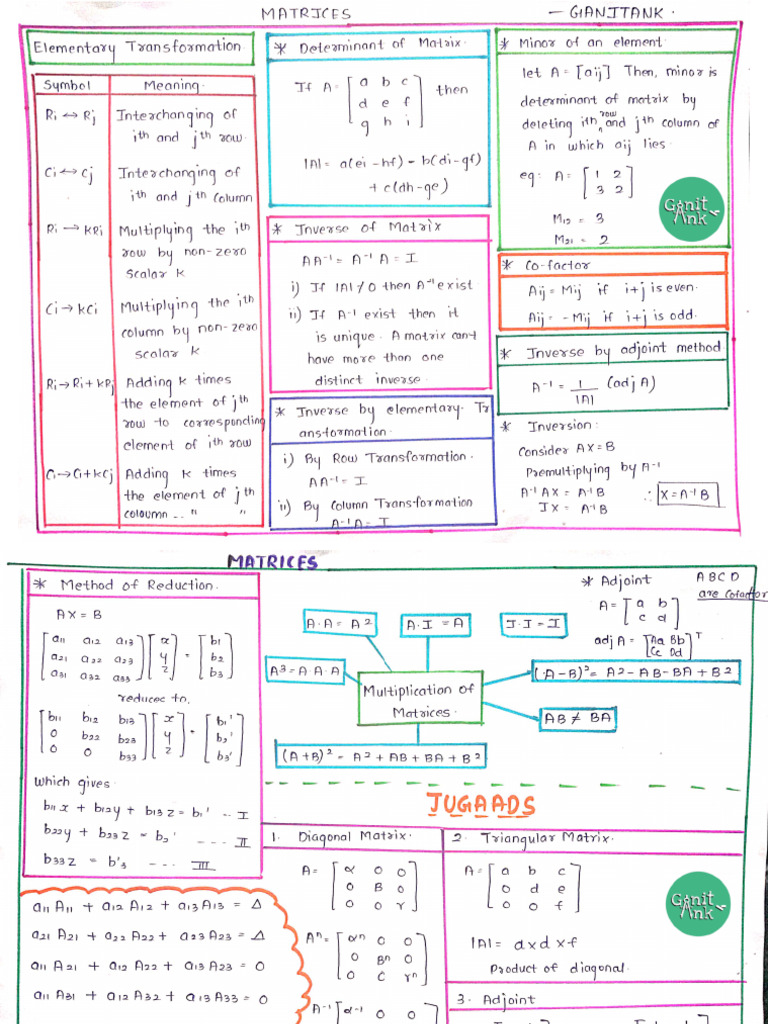 MATRICES
- GIANITANK.
Elementary Transformation
Symbol Meaning.
Ri ↔ Rj Interchanging of
ith and jth row.
Ci ↔ Cj Interchanging of
ith and jth column
Ri → kRi Multiplying the ith
row by non-zero
scalar k
Ci → kCi Multiplying the ith
column by non-zero
scalar k
Ri → Ri + kRj Adding k times
the element of jth
row to corresponding
element of ith row
Ci → Ci + kCj Adding k times
the element of jth
coloumn .. " "
* Determinant of Matrix.
If A = [a b c
d e f
g h i] then
|A| = a(ei - hf) - b(di - gf)
+ c(dh - ge)
* Inverse of Matrix
AA-1 = A-1 A = I
i) If |A| ≠ 0 then A-1 exist
ii) If A-1 exist then it
is unique. A matrix can't
have more than one
distinct inverse.
* Inverse by elementary. Tr
ansformation.
i) By Row Transformation.
AA-1 = I
ii) By Column Transformation
A-1A = I
* Minor of an element.
let A = [aij] Then, minor is
determinant of matrix by
deleting ith row and jth column of
A in which aij lies.
eg: A = [1 2
3 2]
M12 = 3
M21 = 2
Ganit
Ank
* Co-factor
Aij = Mij if i+j is even.
Aij = -Mij if i+j is odd.
* Inverse by adjoint method
A-1 = 1/|A| (adj A)
* Inversion:
Consider AX = B
Premultiplying by A-1
A-1 AX = A-1 B
IX = A-1 B
∴ X = A-1 B
MATRICES
* Method of Reduction.
AX = B
[a11 a12 a13] [x] = [b1]
[a21 a22 a23] [y] [b2]
[a31 a32 a33] [z] [b3]
reduced to,
[b11 b12 b13] [x] = [b1']
[0 b22 b23] [y] [b2']
[0 0 b33] [z] [b3']
which gives.
b11x + b12y + b13z = b1' -- I
b22y + b23z = b2' --- II
b33z = b'3 --- III
a11 A11 + a12 A12 + a13 A13 = Δ
a21 A21 + a22 A22 + a23 A23 = Δ
a11 A21 + a12 A22 + a13 A23 = 0
a11 A31 + a12 A32 + a13 A33 = 0
A·A = A2
A·I = A
I·I = I
A3 = A A·A
Multiplication of
Matrices.
(A-B)2 = A2 - AB - BA + B2
AB ≠ BA
(A+B)2 = A2 + AB + BA + B2
* Adjoint
A B C D
are Cofactor
A = [a b
c d]
adj A = [Aa Bb
Cc Dd]T
JUGAADS
1. Diagonal Matrix.
A = [α 0 0
0 B 0
0 0 r]
An = [αn 0 0
0 Bn 0
0 C rn]
A-1 [α-1 0 0
2. Triangular Matrix.
A = [a b c
0 d e
0 0 f]
|A| = a x d x f
Product of diagonal.
Ganit
Ank
3. Adjoint